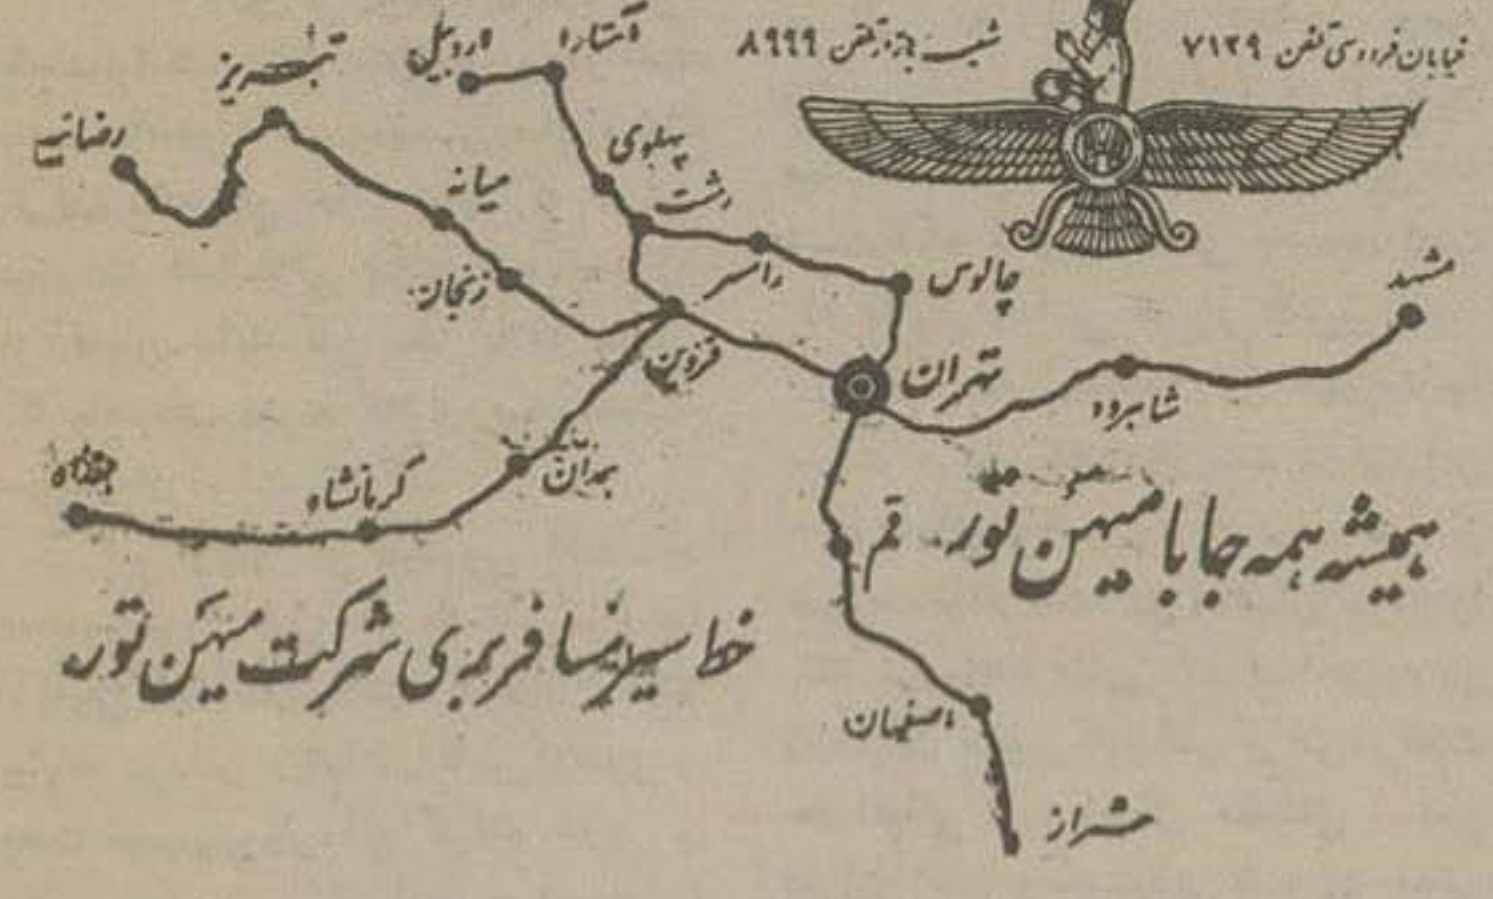 خیابان فردوسی تلفن ۷۱۲۹
شعبه بازار تلفن ۸۹۹۹
آستارا
اردبیل
تبریز
رضائیه
پهلوی
رشت
میانه
زنجان
رامسر
چالوس
مشهد
قزوین
تهران
شاهرود
همدان
کرمانشاه
قم
همیشه همه جا با میهن تور
خط سیر مسافربری شرکت میهن تور
اصفهان
شیراز